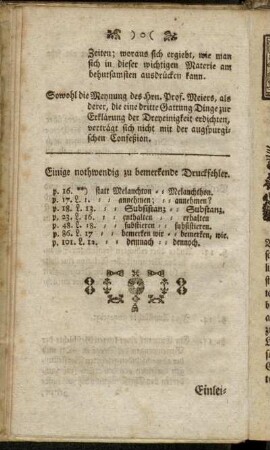 )o(
Zeiten; woraus sich ergiebt, wie man
sich in dieser wichtigen Materie am
behutsamsten ausdrücken kann.
Sowohl die Meynung des Hrn. Prof. Meiers, als
derer, die eine dritte Gattung Dinge zur
Erklärung der Dreyeinigkeit erdichten,
verträgt sich nicht mit der augspurgi-
schen Confeßion.
Einige nothwendig zu bemerkende Druckfehler.
p. 16. **) statt Melanchton ⸗ ⸗ Melanchthon.
p. 17. L. 1. ⸗ ⸗ annehmen; ⸗ ⸗ annehmen?
p. 18. L. 13. ⸗ ⸗ Subsistanz ⸗ ⸗ Substanz.
p. 23. L. 16. ⸗ ⸗ enthalten ⸗ ⸗ erhalten
p. 48. L. 18. ⸗ ⸗ substieren ⸗ ⸗ subsistieren.
p. 86. L. 17 ⸗ ⸗ bemerken wir ⸗ ⸗ bemerken, wie.
p. 101. L. 12. ⸗ ⸗ demnach ⸗ ⸗ dennoch.
Einlei-